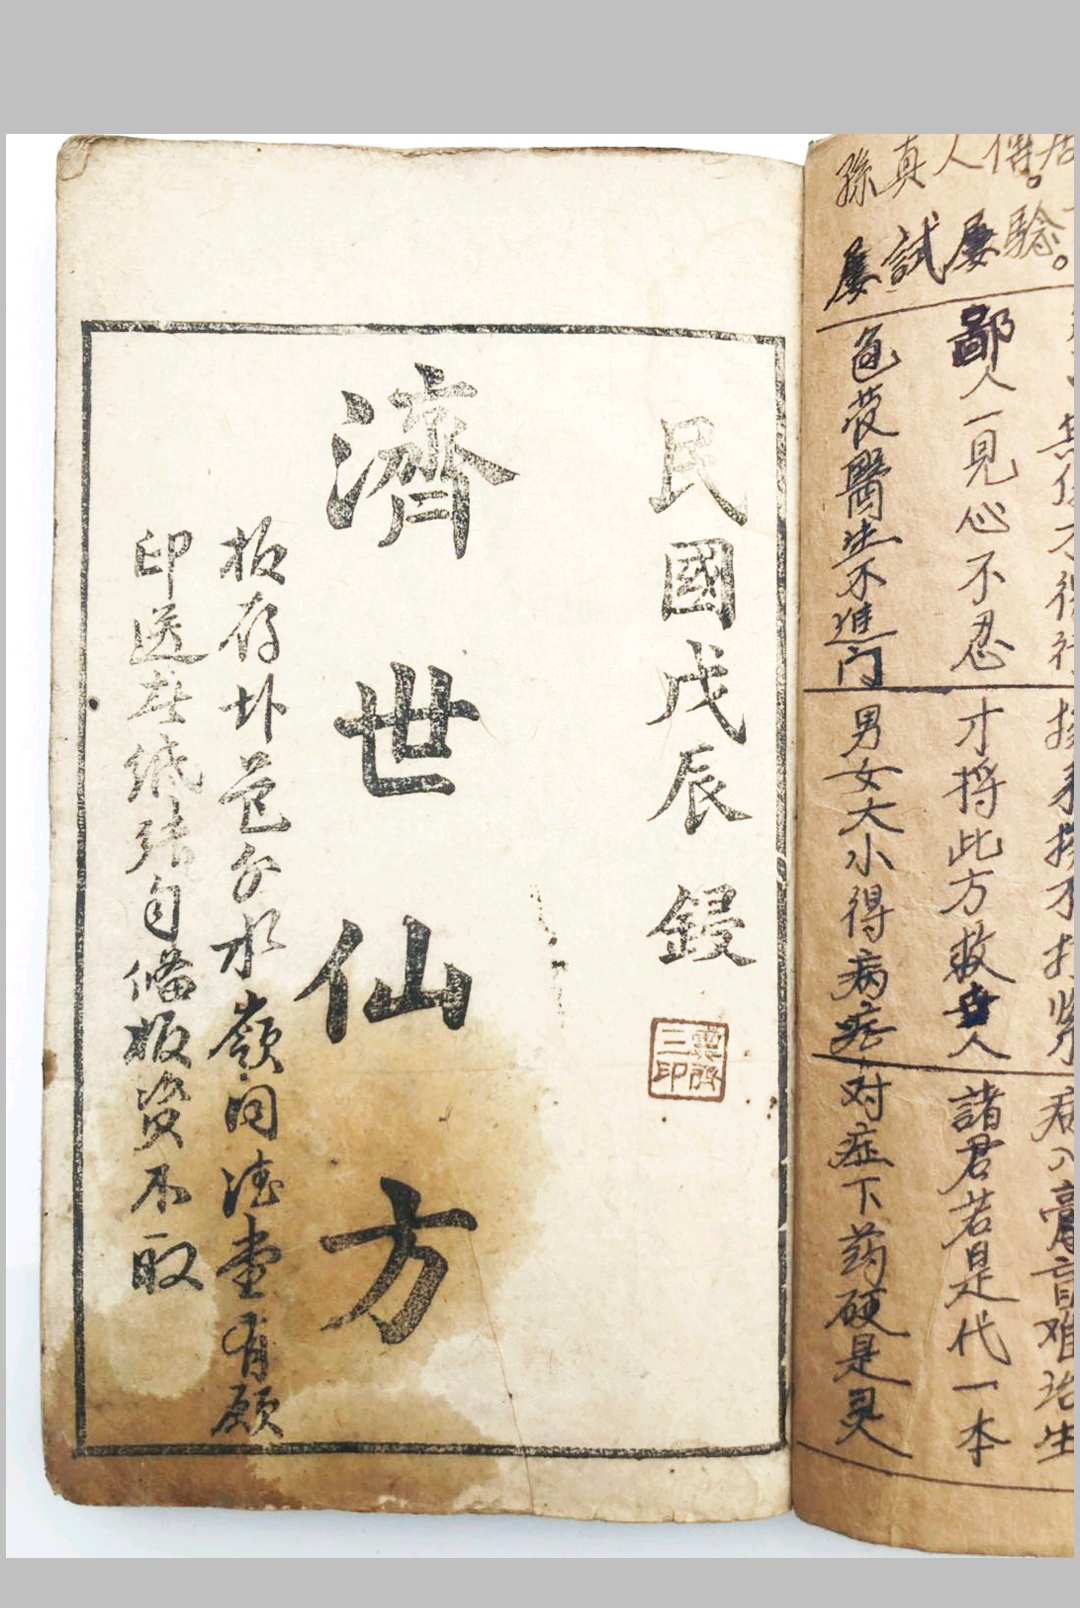 孫真人傳。
屢試屢驗。
病入膏肓难治生
鄙人一見心不忍
才捋此方救世人
諸君若是代一本
醫生不進门
男女大小得病症
对症下药硬是灵
民國戊辰鋟
濟世仙方
板存 分水嶺同德堂有願
印送者紙張自備板資不取